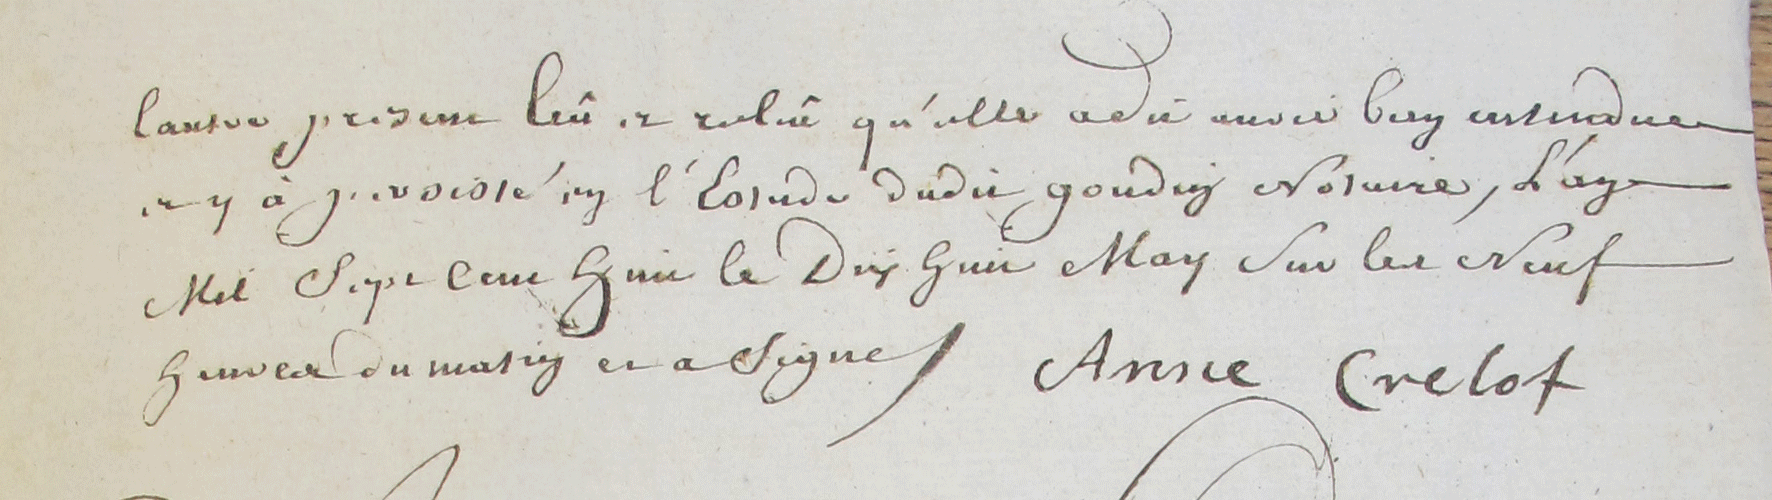 lautre present leû et releû qu'elle a dit avoir bien entendue
et y à persisté en l'Estude dudit goudin Notaire, L'an
Mil Sept Cent huit le Dix huit May Sur les Neuf
heures du matin et a Signé Anne Crelot